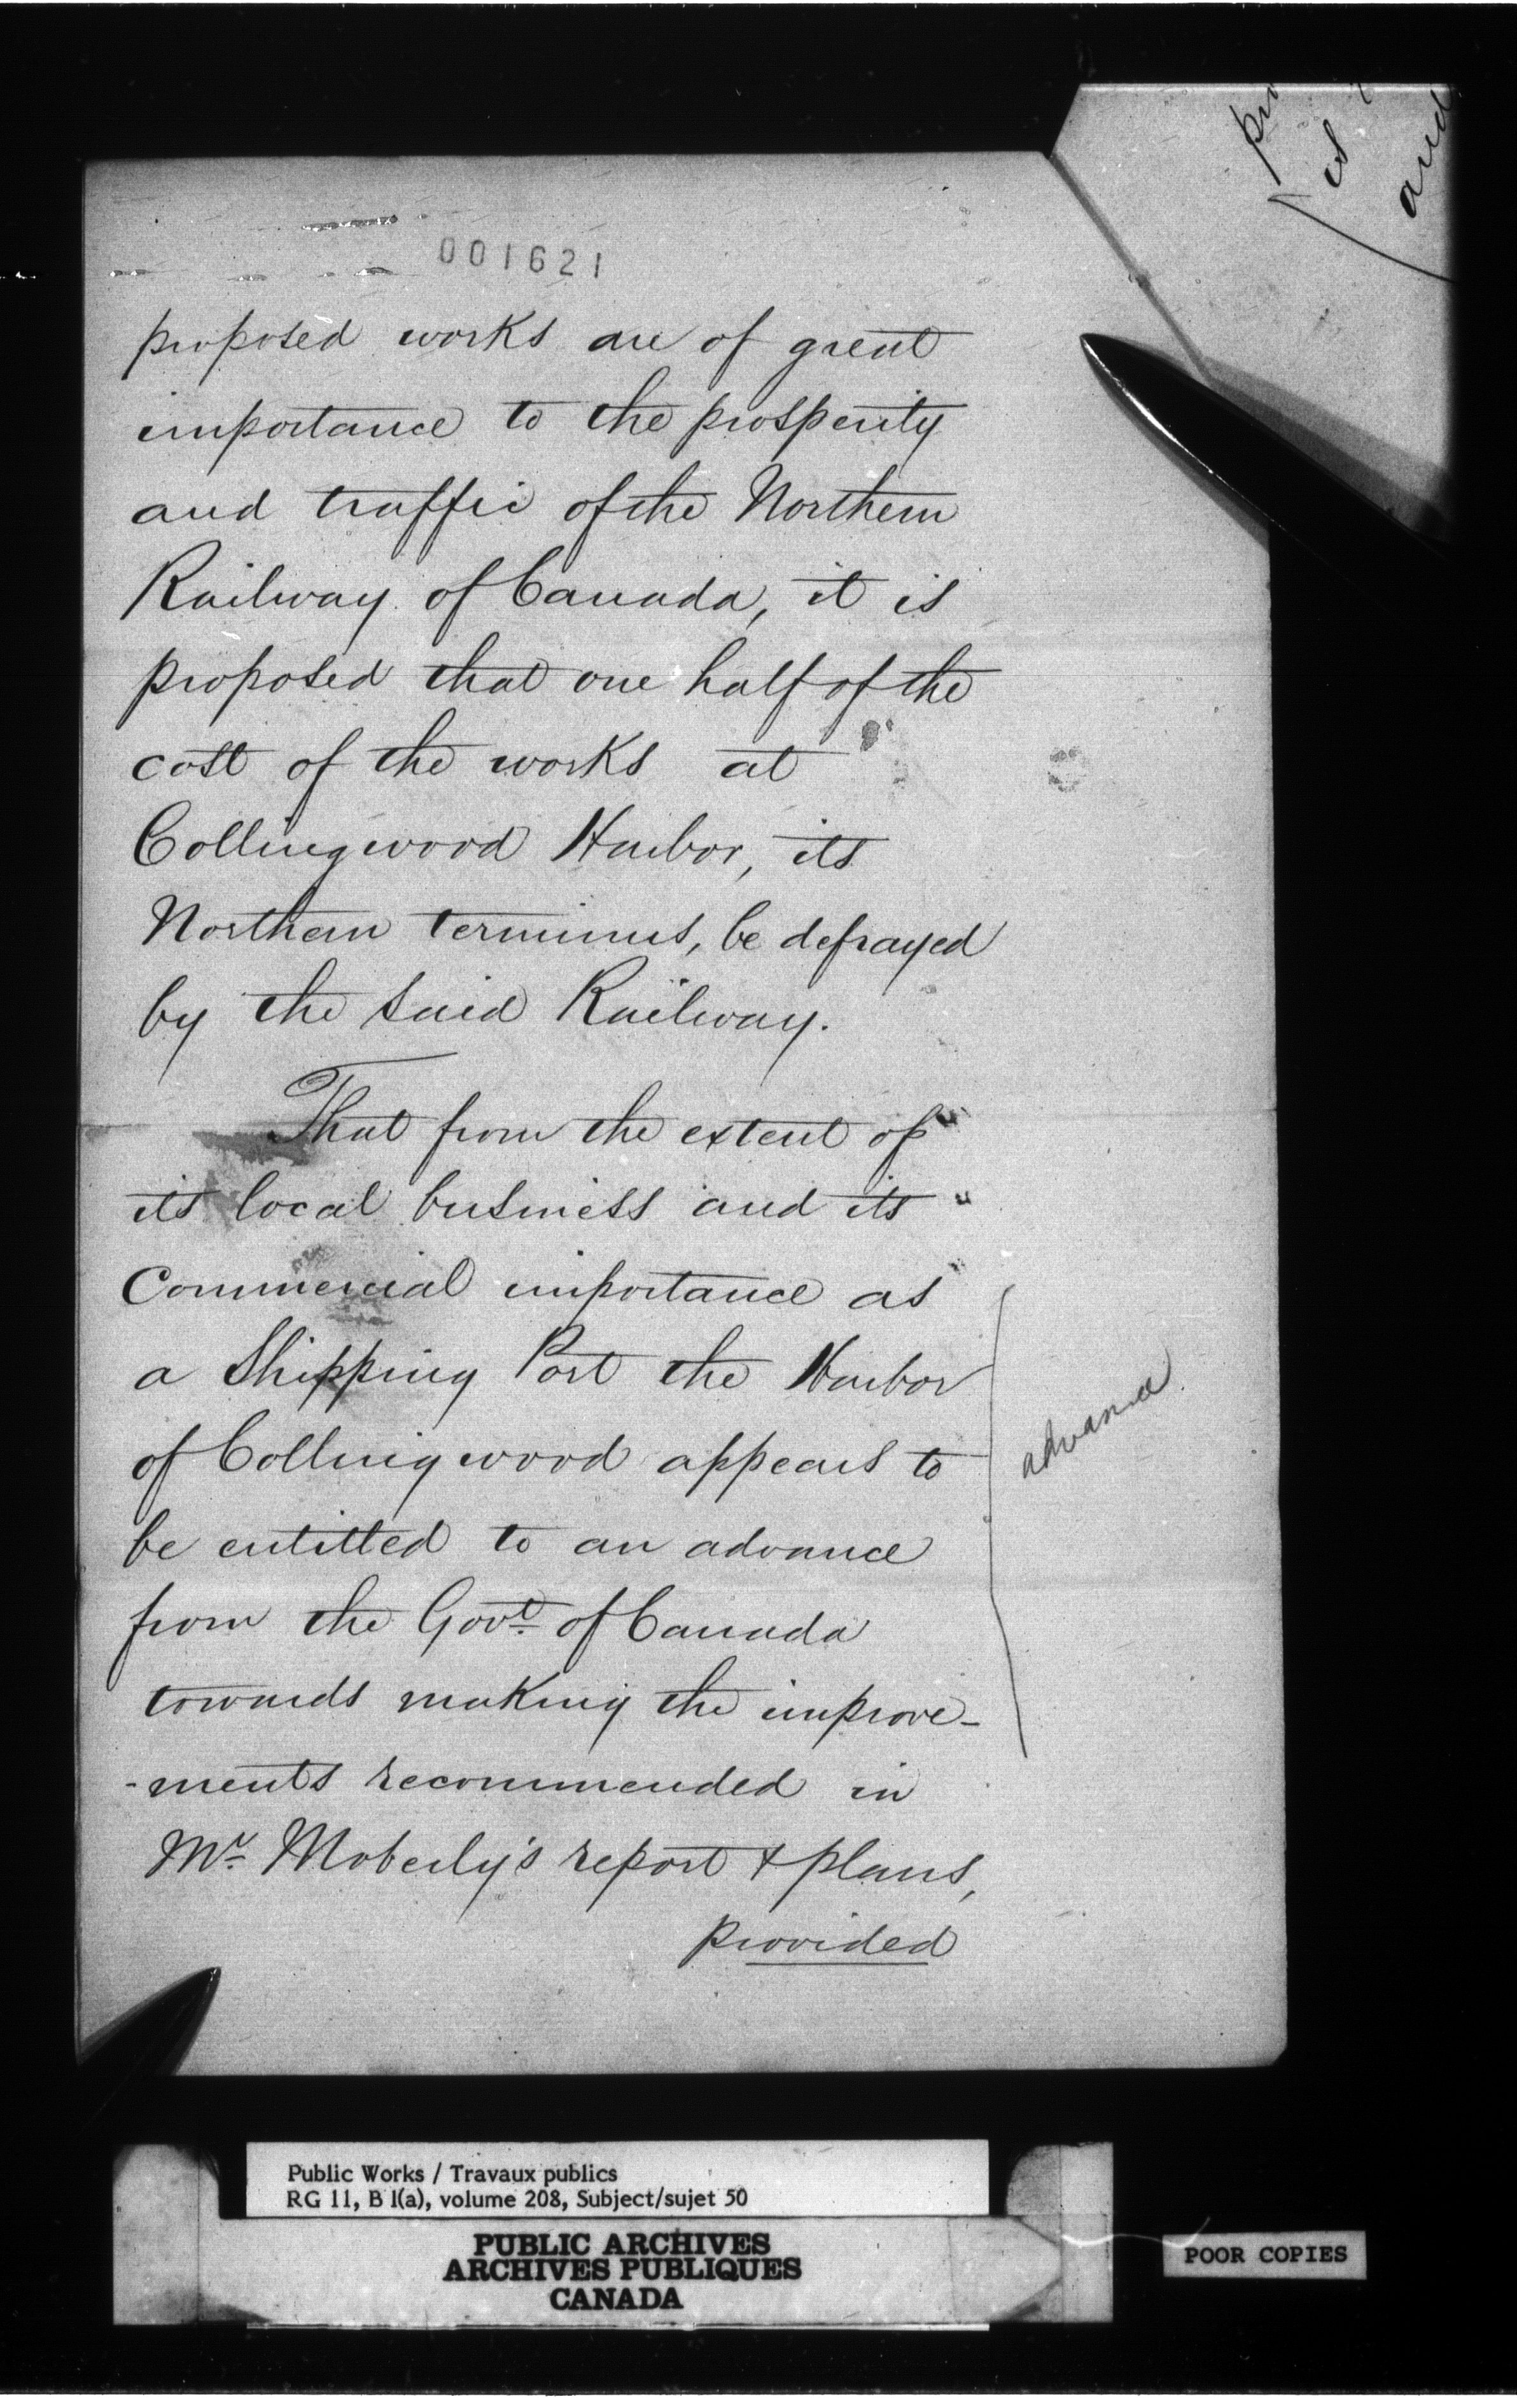 and
001621
proposed works are of great
importance to the prosperity
and traffic of the Northern
Railway of Canada, it is
proposed that one half of the
cost of the works at
Collingwood Harbor, its
Northern terminus, be defrayed
by the said Railway.
That from the extent of
its local business and its
Commercial importance as
a Shipping Port the Harbor
of Collingwood appears to
be entitled to an advance
from the Govt. of Canada
towards making the improve-
-ments recommended in
Mr. Moberly's report & plans,
provided
advance
Public Works / Travaux publics
RG 11, B 1(a), volume 208, Subject/sujet 50
PUBLIC ARCHIVES
ARCHIVES PUBLIQUES
CANADA
POOR COPIES